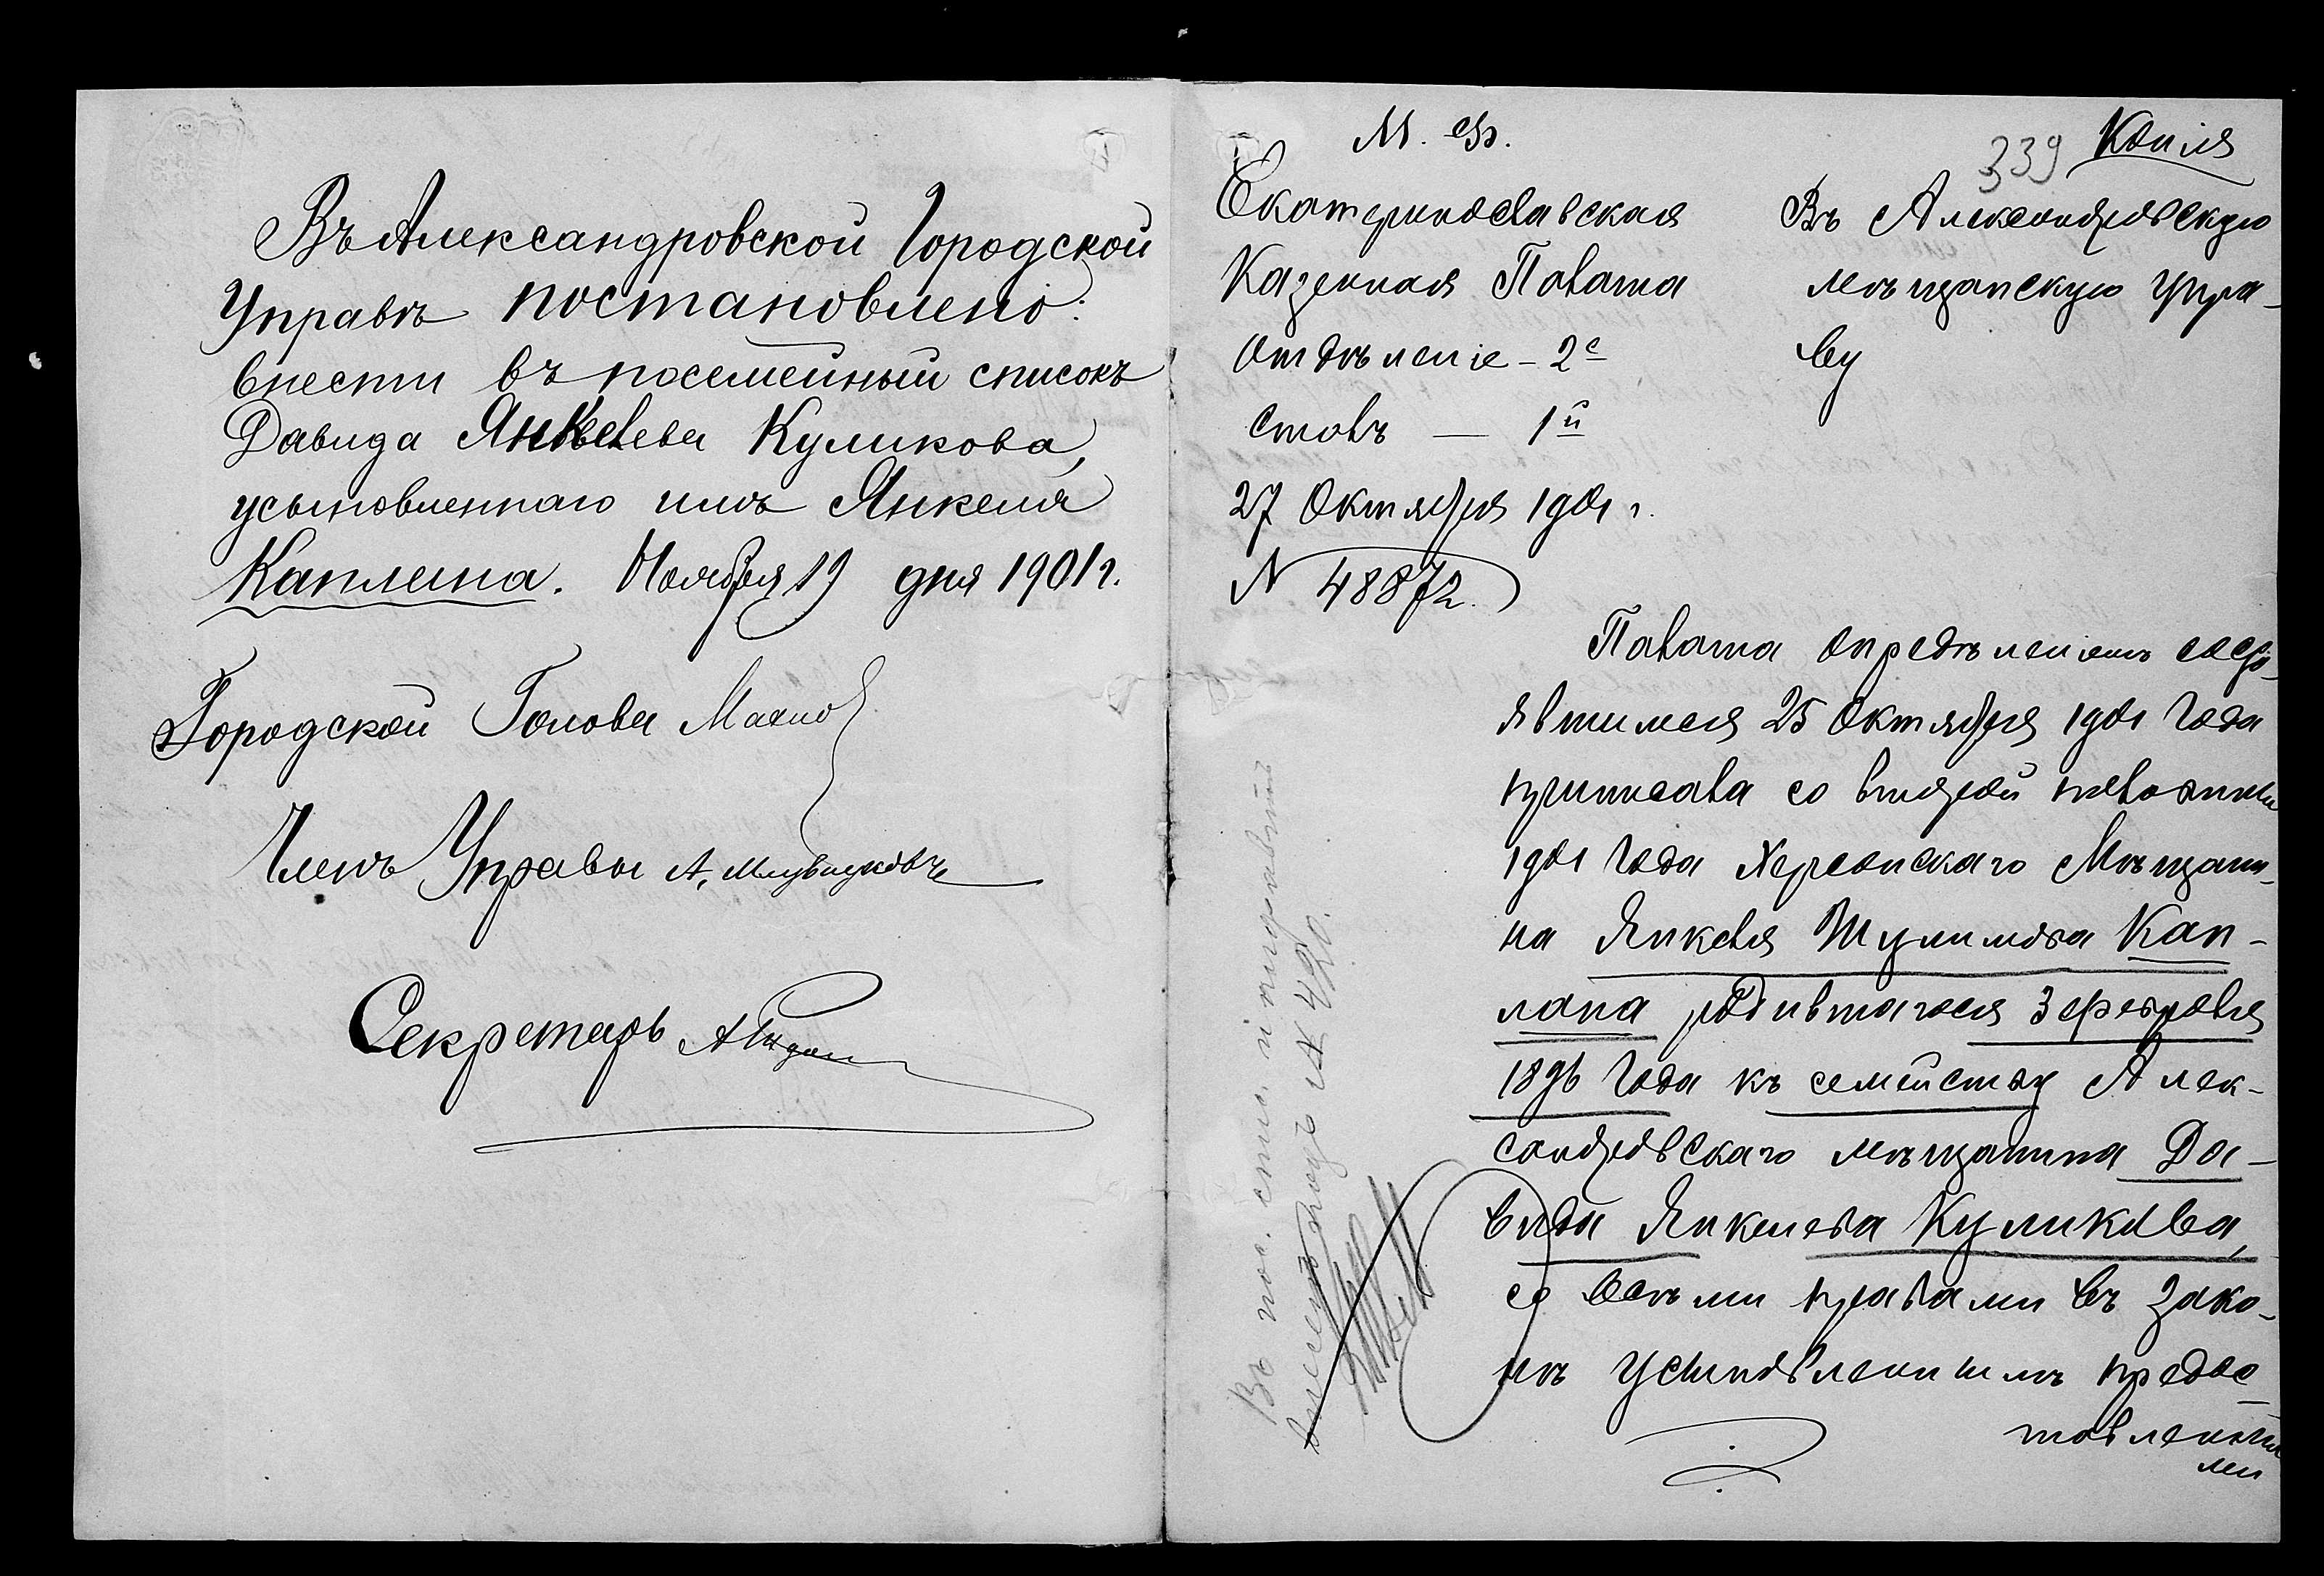 Въ Александровской Городской
Управѣ постановлено:
внести въ посемейный списокъ
Давида Янкелева Куликова,
усыновленнаго имъ Янкеля
Каплана. Ноября 19 дня 1901 г.
Городской Голова
Членъ Управы А.
Секретарь
М. Ф.
339 Копія
Екатеринославская
Казенная Палата
Отдѣленіе – 2е
Столъ — 1й
27 Октября 1901 г.
N 48872.
Въ Александровскую
мѣщанскую Упра-
ву
Палата опредѣленіемъ состо-
явшимся 25 Октября 1901 года
приписала со второй половины
1901 года Херсонскаго Мѣщани-
на Янкеля Шулимова Кап-
лана родившагося 3 февраля
1896 года къ семейству Алек-
сандровскаго мѣщанина Да-
вида Янкелева Куликова,
со всѣми правами въ зако-
нѣ усыновленнымъ предос-
тавленны
ми
Въ пос. спис. и
внесенъ подъ N 420.